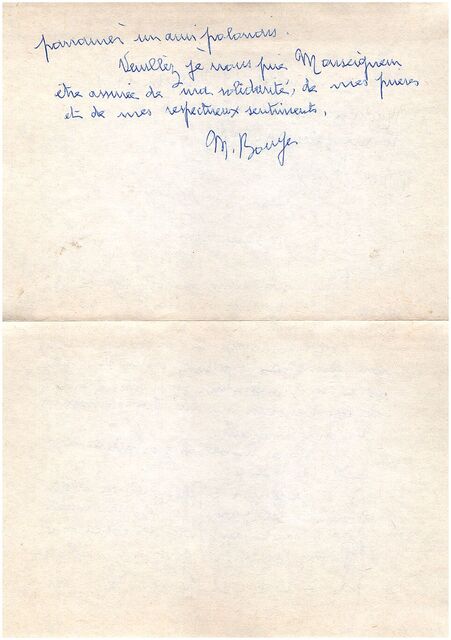 parrainer un ami polonais.
Veuillez je vous prie Monseigneur
être assurée de ma solidarité, de mes prières
et de mes respectueux sentiments.
M. Bouyer